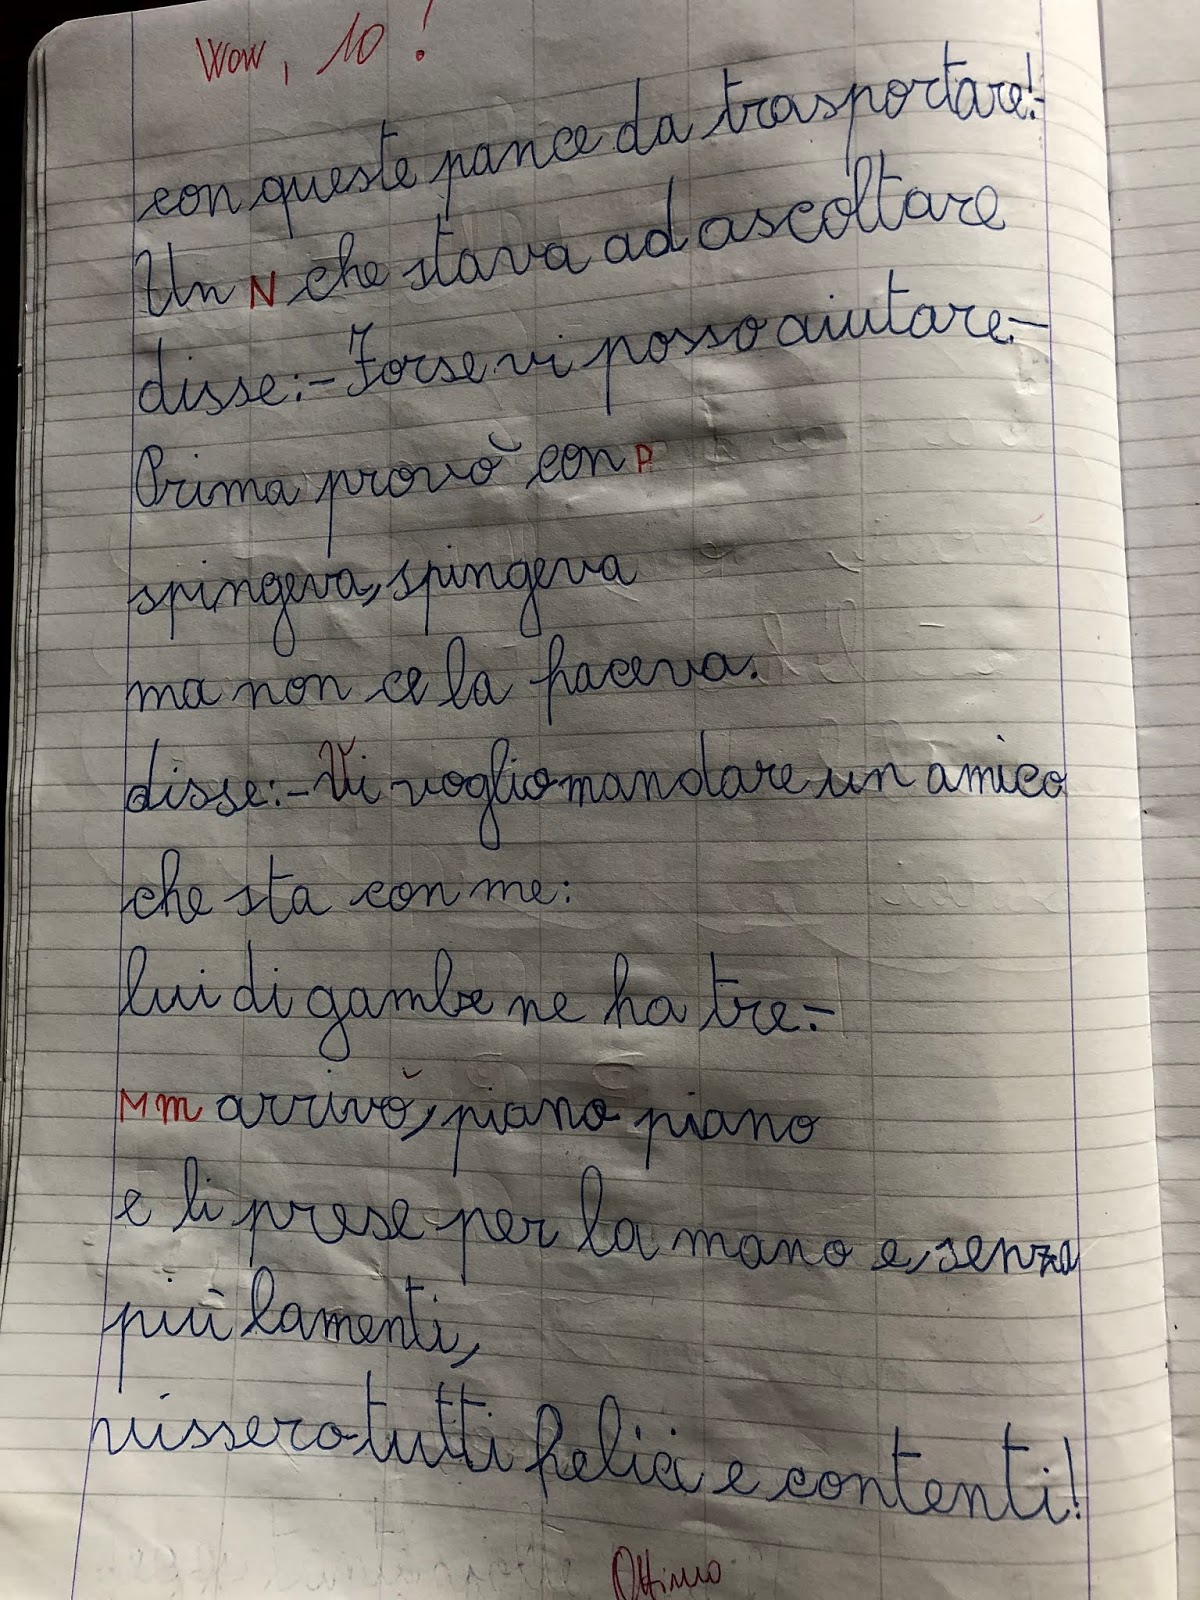 Wow, 10!
con queste pance da trasportare!-
Un N che stava ad ascoltare
disse:-Forse vi posso aiutare-
Prima provò con P
spingeva, spingeva
ma non ce la faceva.
disse:-Vi voglio mandare un amico
che sta con me:
lui di gambe ne ha tre:-
M m arrivò, piano piano
e li prese per la mano e, senza
più lamenti,
vissero tutti felici e contenti!
Ottimo